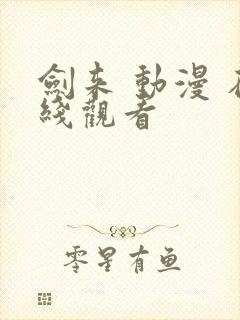 劍来 動漫
綫觀看
零星有鱼